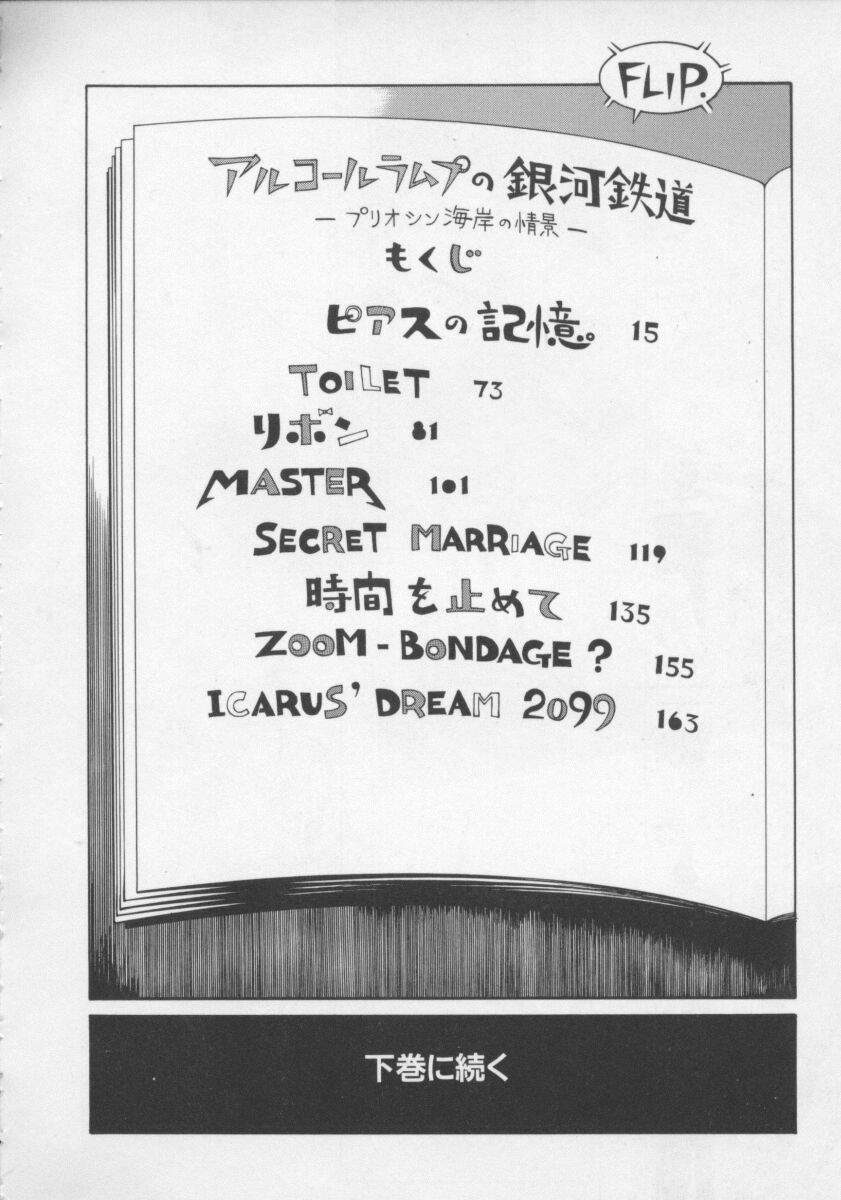 FLIP.
アルコールラムプの銀河鉄道
―プリオシン海岸の情景―
もくじ
ピアスの記憶。 15
TOILET 73
リボン 81
MASTER 101
SECRET MARRIAGE 119
時間を止めて 135
ZOOM-BONDAGE? 155
ICARUS' DREAM 2099 163
下巻に続く